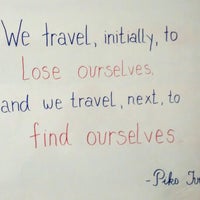 We travel, initially, to
Lose ourselves.
and we travel, next, to
find ourselves
- Piko